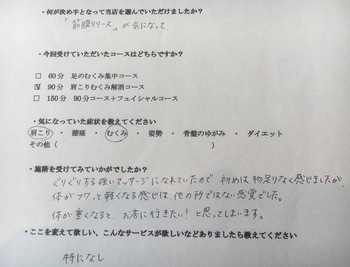 ・何が決め手となって当店を選んでいただけましたか？
「筋膜リリース」が気になって
・今回受けていただいたコースはどちらですか？
□ 60分 足のむくみ集中コース
☑ 90分 肩こりむくみ解消コース
□ 150分 90分コース＋フェイシャルコース
・気になっていた症状を教えてください
肩こり ・ 腰痛 ・ むくみ ・ 姿勢 ・ 骨盤のゆがみ ・ ダイエット
その他（ ）
・施術を受けてみていかがでしたか？
ぐりぐりする強いマッサージになれていたので、初めは物足りなく感じましたが、
体がフワッと軽くなる感じは、他の所ではない感覚でした。
体が重くなると、お店に行きたい！と思ってしまいます。
・ここを変えて欲しい、こんなサービスが欲しいなどありましたら教えてください
特になし